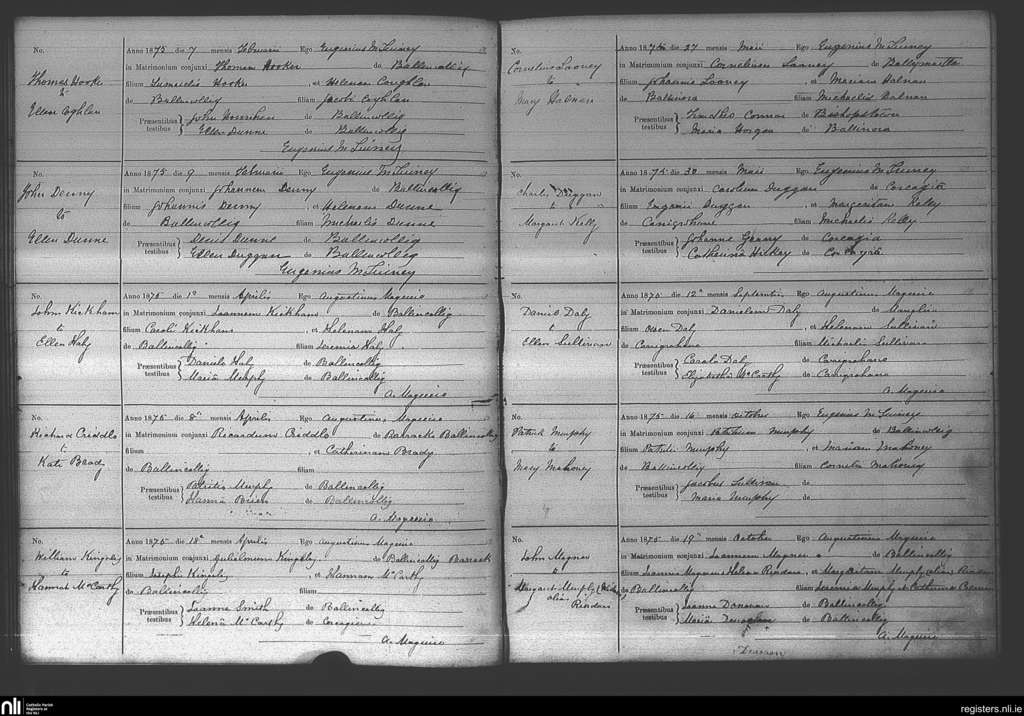 No.
Thomas Hooke
to
Ellen Coghlan
Anno 1875 die 7 mensis Februarii Ego Eugenius McSwiney
in Matrimonium conjunxi Thomam Hooke de Ballincollig
filium Hooke , et Helenam Coughlan
de Ballincollig filiam Jacobi Coghlan
Præsentibus testibus John de Ballincollig
Ellen Dunne de Ballincollig
Eugenius McSwiney
No.
John Denny
to
Ellen Dunne
Anno 1875 die 9 mensis Februarii Ego Eugenius McSwiney
in Matrimonium conjunxi Johannem Denny de Ballincollig
filium Johannis Denny , et Helenam Dunne
de Ballincollig filiam Michaelis Dunne
Præsentibus testibus Denis Dunne de Ballincollig
Ellen Duggan de Ballincollig
Eugenius McSwiney
No.
John Kickham
to
Ellen Haly
Anno 1875 die 1º mensis Aprilis Ego Augustinus Maguire
in Matrimonium conjunxi Joannem Kickham de Ballincollig
filium Caroli Kickham , et Helenam Haly
de Ballincollig filiam Jeremia Haly
Præsentibus testibus Daniele Haly de Ballincollig
Maria Murphy de Ballincollig
A. Maguire
No.
Richard Criddle
to
Kate Brady
Anno 1875 die 8ª mensis Aprilis Ego Augustinus Maguire
in Matrimonium conjunxi Ricardum Criddle de Barracks Ballincollig
filium , et Catherinam Brady
de Ballincollig filiam
Præsentibus testibus Murphy de Ballincollig
Hanna de Ballincollig
A. Maguire
No.
William Kingsley
to
Hannah McCarthy
Anno 1875 die 18ª mensis Aprilis Ego Augustinus Maguire
in Matrimonium conjunxi Gulielmum Kingsley de Ballincollig Barrack
filium Josephi Kingsley , et Hannam McCarthy
de Ballincollig filiam
Præsentibus testibus Joanne Smith de Ballincollig
Helena McCarthy de Corcagiensi
A. Maguire
No.
Cornelius Looney
to
Mary Halnan
Anno 1875 die 27 mensis Maii Ego Eugenius McSwiney
in Matrimonium conjunxi Cornelium Looney de
filium Johannis Looney , et Mariam Halnan
de Ballinora filiam Michaelis Halnan
Præsentibus testibus Timotheo Connor de Bishopstown
Maria Horgan de Ballinora
No.
Charles Duggan
to
Margaret Kelly
Anno 1875 die 30 mensis Maii Ego Eugenius McSwiney
in Matrimonium conjunxi Carolum Duggan de Corcagia
filium Eugenii Duggan , et Margaritam Kelly
de Carrigrohane filiam Michaelis Kelly
Præsentibus testibus Johanne Geany de Corcagia
Catherina Hickey de Corcagia
No.
Daniel Daly
to
Ellen Sullivan
Anno 1875 die 12ª mensis Septembris Ego Augustinus Maguire
in Matrimonium conjunxi Danielem Daly de
filium Owen Daly , et Helenam Sullivan
de Carigrohane filiam Michaelis Sullivan
Præsentibus testibus Carolo Daly de Carigrohane
Elizabetha McCarthy de Carigrohane
A. Maguire
No.
Patrick Murphy
to
Mary Mahoney
Anno 1875 die 16 mensis Octobris Ego Eugenius McSwiney
in Matrimonium conjunxi Patritium Murphy de Ballincollig
filium Patritii Murphy , et Mariam Mahoney
de Ballincollig filiam Cornelii Mahoney
Præsentibus testibus Jacobus Sullivan de
Maria Murphy de
No.
John Magner
to
Margaret Murphy
alias Riordan
Anno 1875 die 19ª mensis Octobris Ego Augustinus Maguire
in Matrimonium conjunxi Joannem Magner de Ballincollig
filium Joannis Magner et Helena Riordan , et Margaritam Murphy alias Riordan
de Ballincollig filiam Jeremia Murphy et Catherina
Præsentibus testibus Joanne Donovan de Ballincollig
Maria de Ballincollig
A. Maguire
nli
Catholic Parish
Registers at
the NLI
registers.nli.ie